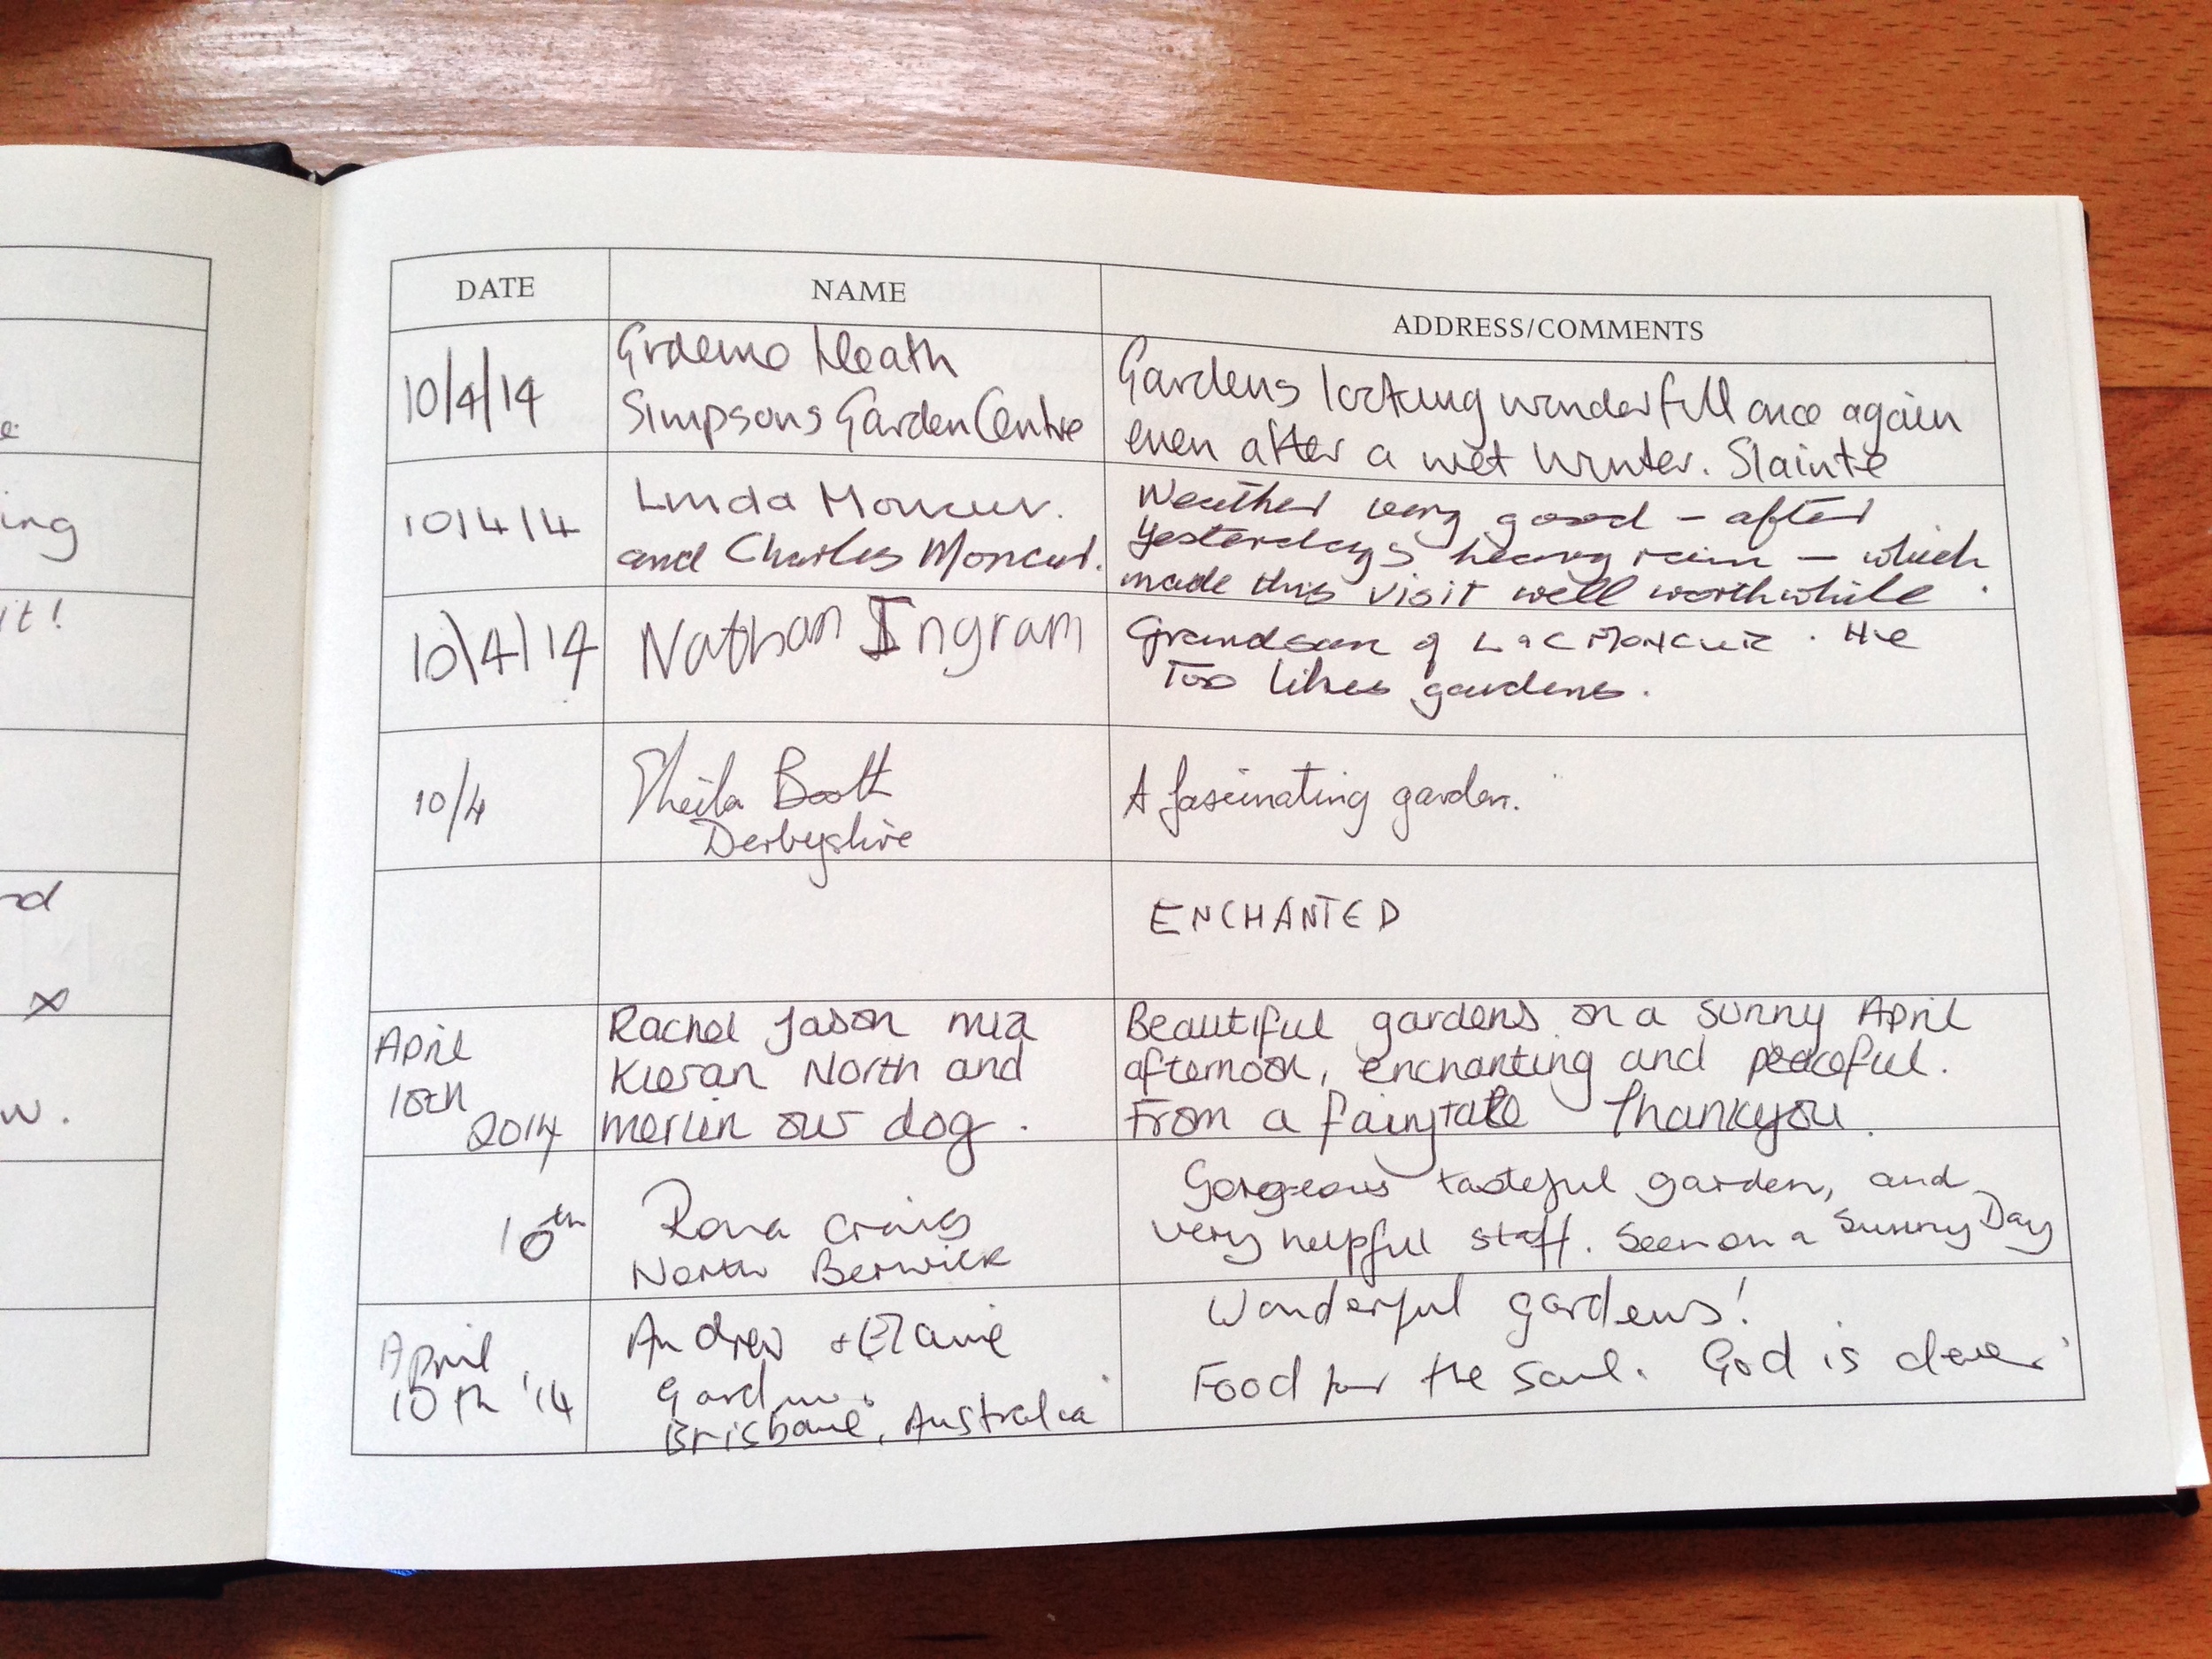 e
ing
it!
nd
x
w.
DATE NAME ADDRESS/COMMENTS
10/4/14
Graeme Heath
Simpsons Garden Centre
Gardens looking wonderfull once again
even after a wet winter. Slainte
10/4/14
Linda Moncur.
and Charles Moncur.
Weather very good - after
yesterdays heavy rain - which
made this visit well worthwhile.
10/4/14
Nathan Ingram
Grandson of L & C MONCUR. He
Too likes gardens.
10/4
Sheila Booth
Derbyshire
A fascinating garden.
ENCHANTED
April
10th
2014
Rachel Jason mia
Kieran North and
merlin our dog.
Beautiful gardens on a sunny April
afternoon, enchanting and peaceful.
From a fairytale Thankyou.
10th
Rona Craig
North Berwick
Gorgeous tasteful garden, and
very helpful staff. Seen on a Sunny Day
April
10th '14
Andrew + Elaine
Brisbane, Australia
Wonderful gardens!
Food for the soul. God is clever